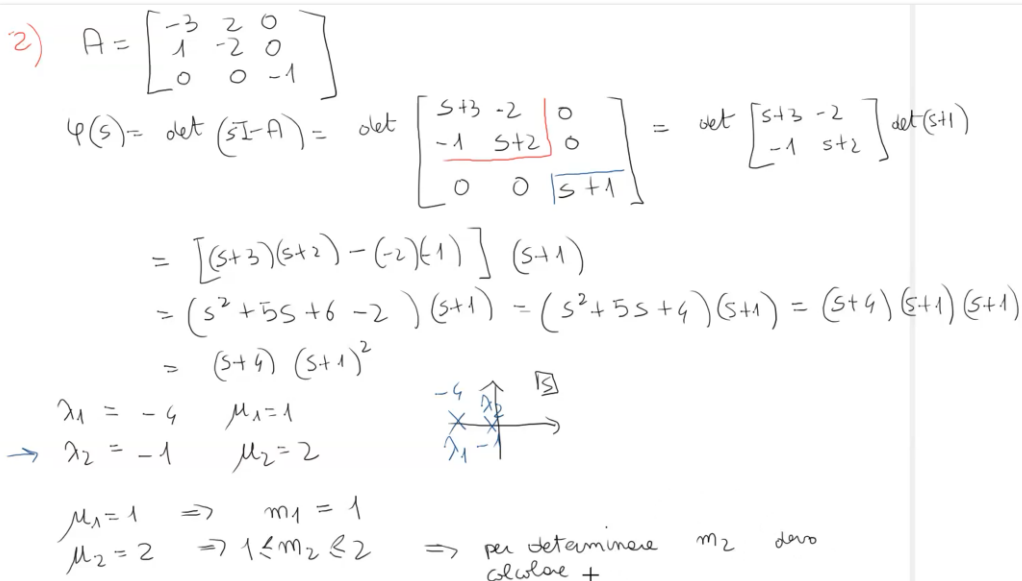 2) A = [ -3 2 0
1 -2 0
0 0 -1 ]
φ(s) = det (sI-A) = det [ s+3 -2 0
-1 s+2 0
0 0 s+1 ] = det [ s+3 -2
-1 s+2 ] det(s+1)
= [(s+3)(s+2) - (-2)(-1)] (s+1)
= (s² + 5s + 6 - 2) (s+1) = (s² + 5s + 4)(s+1) = (s+4)(s+1)(s+1)
= (s+4) (s+1)²
λ1 = -4 μ1 = 1
→ λ2 = -1 μ2 = 2
-4 λ2 s
λ1 -1
μ1 = 1 => m1 = 1
μ2 = 2 => 1 ≤ m2 ≤ 2 => per determinare m2 devo
calcolare +